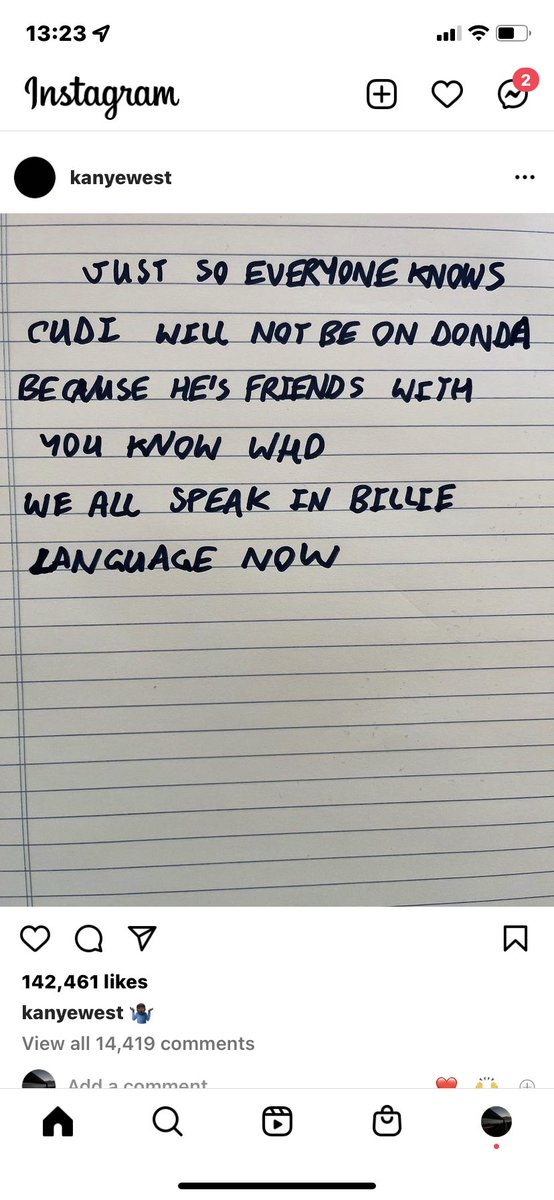 13:23
Instagram
2
kanyewest
JUST SO EVERYONE KNOWS
CUDI WILL NOT BE ON DONDA
BECAUSE HE'S FRIENDS WITH
YOU KNOW WHO
WE ALL SPEAK IN BILLIE
LANGUAGE NOW
142,461 likes
kanyewest 🤷🏿‍♂️
View all 14,419 comments
Add a comment